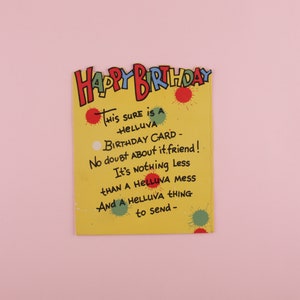 HAPPY BIRTHDAY
THIS SURE IS A
HELLUVA
BIRTHDAY CARD-
NO DOUBT ABOUT IT, FRIEND!
IT'S NOTHING LESS
THAN A HELLUVA MESS
AND A HELLUVA THING
TO SEND-